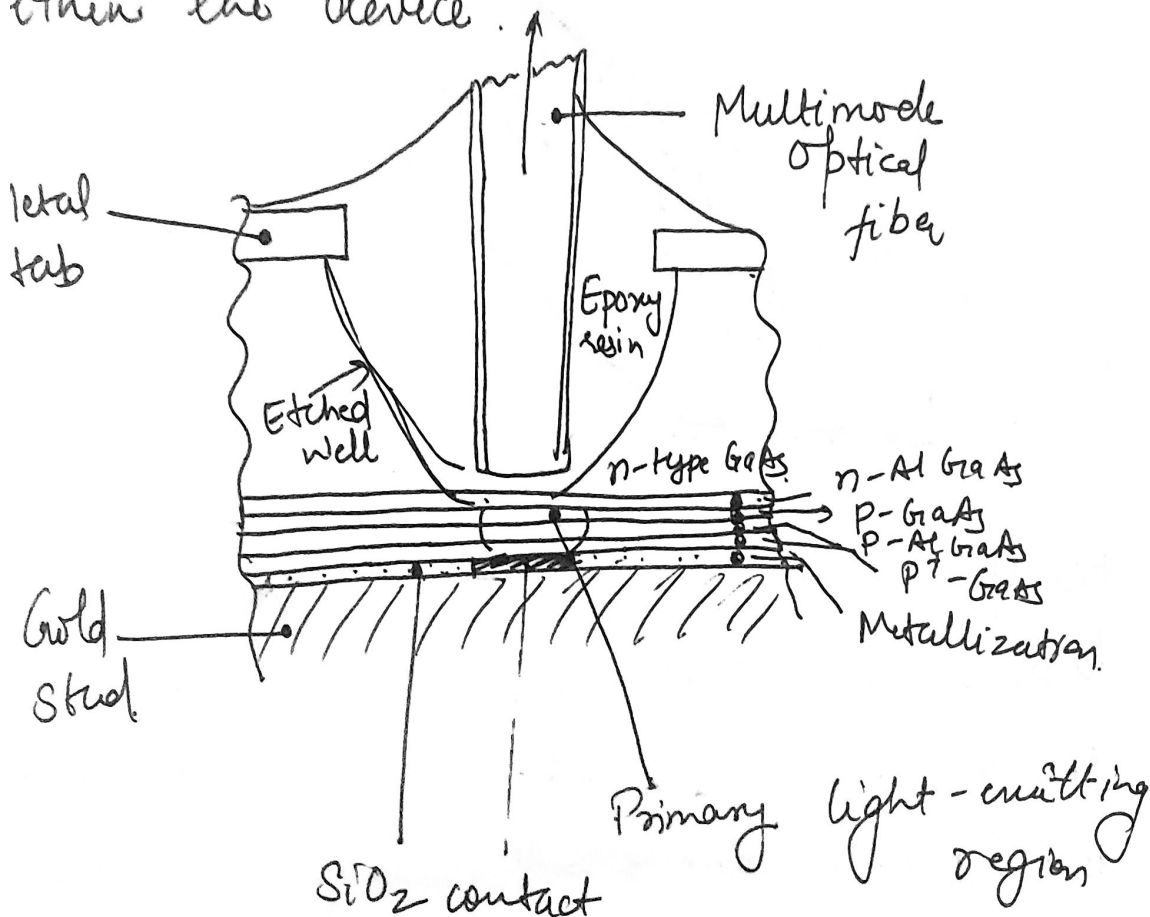 ithin the device.
Multimode
Optical
fiber
letal
tab
Epoxy
resin
Etched
Well
n-type GaAs
n-Al GaAs
P-GaAs
P-Al GaAs
P+-GaAs
Metallization.
Gold
Stud.
Primary light-emitting
region
SiO2 contact